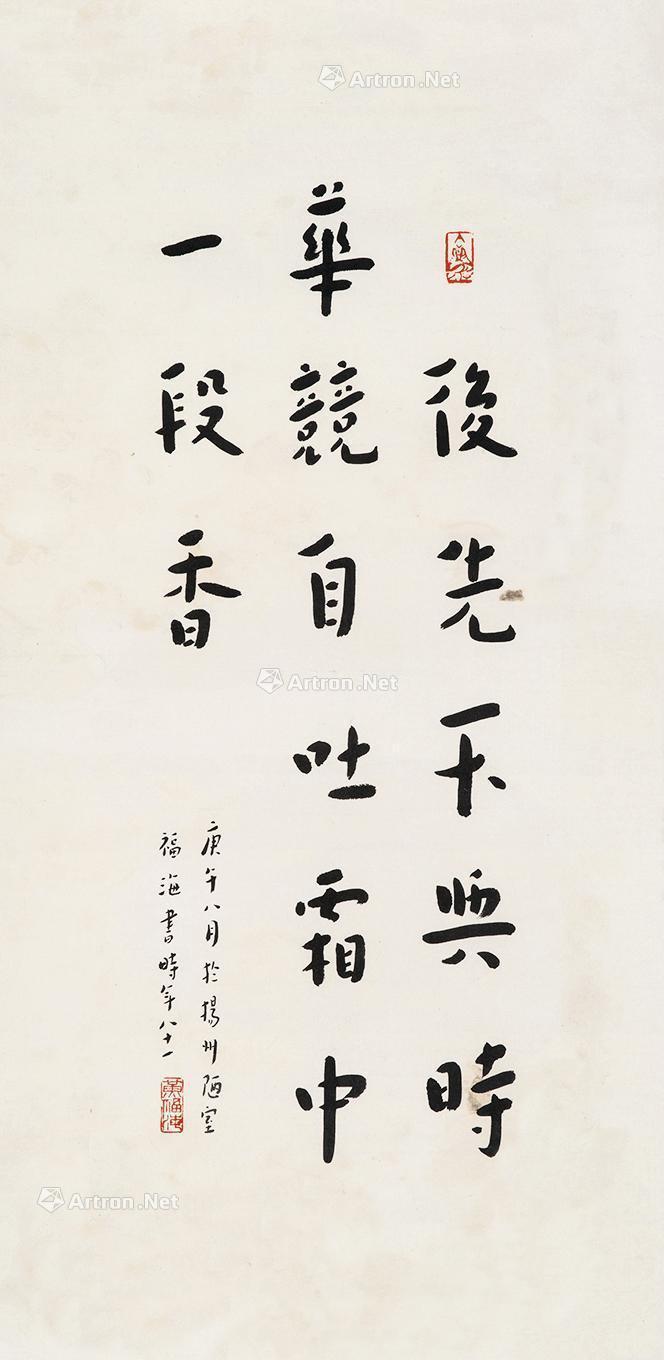 後先不與時
華競自吐霜中
一段香
庚午八月於揚州陋室
福海書時年八十一
黃福海
Artron.Net
Artron.Net
Artron.Net